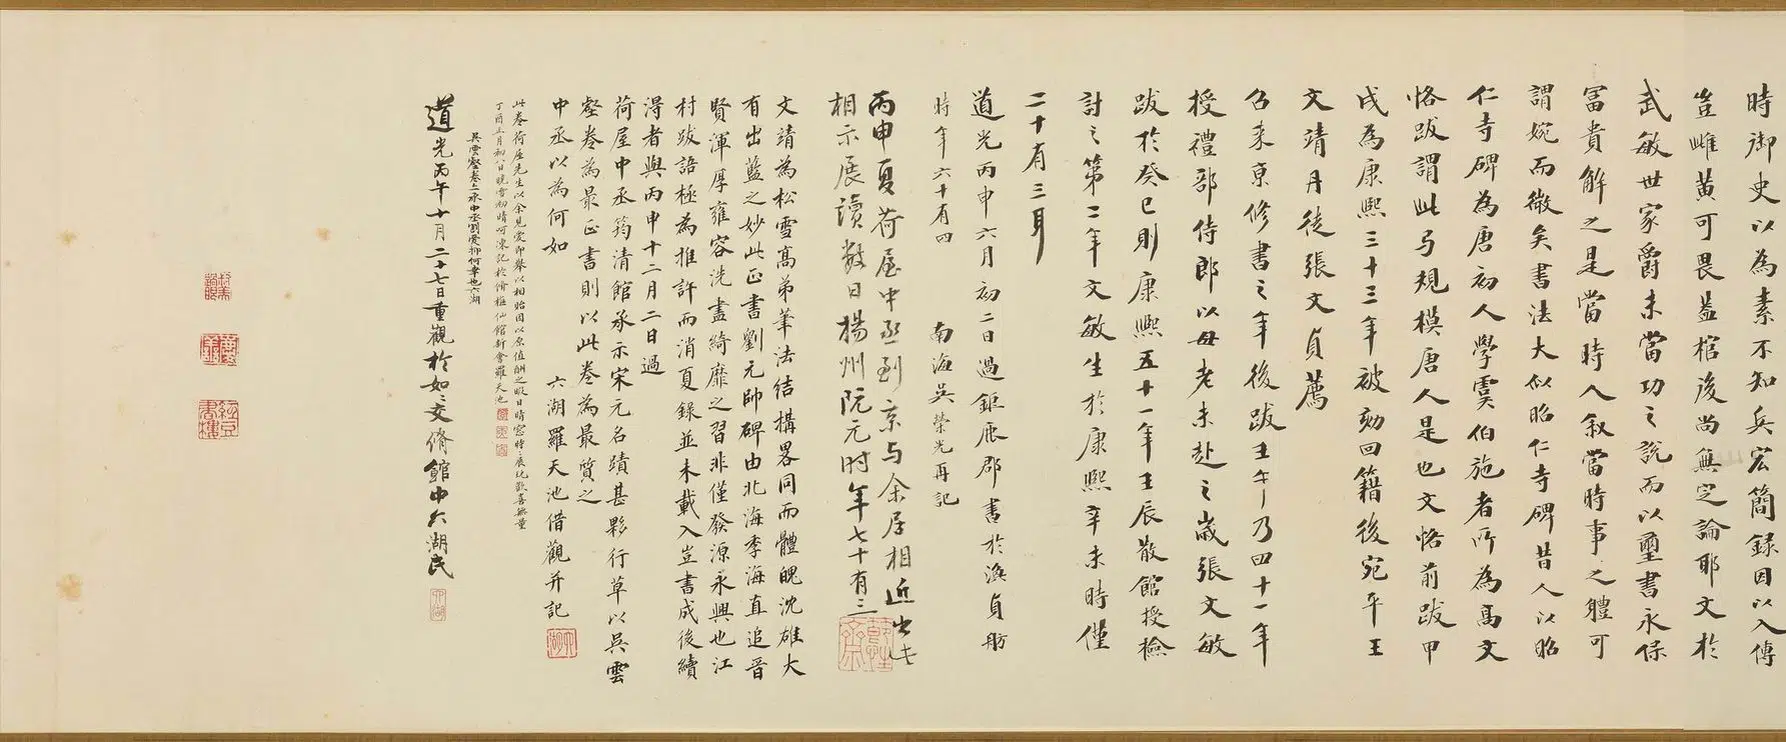 時御史以為素不知兵宏簡録因以入傳
豈雌黄可畏葢棺後尚無定論耶文於
武敏世家爵未當功之說而以璽書永保
冨貴解之是當時人叙當時事之體可
謂婉而微矣書法大似昭仁寺碑昔人以昭
仁寺碑為唐初人學虞伯施者所為髙文
恪跋謂此与規模唐人是也文恪前跋甲
戌為康熙三十三年被劾回籍後宛平王
文靖丹徒張文貞薦
召来京修書之年後跋壬午乃四十一年
授禮部侍郎以母老未赴之嵗張文敏
跋於癸巳則康熙五十一年壬辰散館授檢
討之第二年文敏生於康熙辛未時僅
二十有三耳
道光丙申六月初二日過鉅鹿郡書於渙貞舫
時年六十有四 南海吳榮光再記
丙申夏荷屋中丞到京与余居相近出此
相示展讀數日揚州阮元时年七十有三
文靖為松雪髙弟筆法結構畧同而體魄沈雄大
有出藍之妙此正書劉元帥碑由北海季海直追晉
賢渾厚雍容洗盡綺靡之習非僅發源永興也江
村跋語極為推許而消夏録並未載入豈書成後續
淂者與丙申十二月二日過
荷屋中丞筠清館承示宋元名蹟甚夥行草以吳雲
壑卷為最正書則以此卷為最質之
中丞以為何如 六湖羅天池借觀并記
此卷荷屋先生以余見愛即舉以相貽因以原值酬之暇日晴窓時時展玩歡喜無量
丁酉五月初八日晚雪初晴呵凍記於脩梅仙館新會羅天池
吳雲壑卷上承中丞割愛抑何幸也六湖
道光丙午十月二十七日重觀於如如交脩館中六湖民